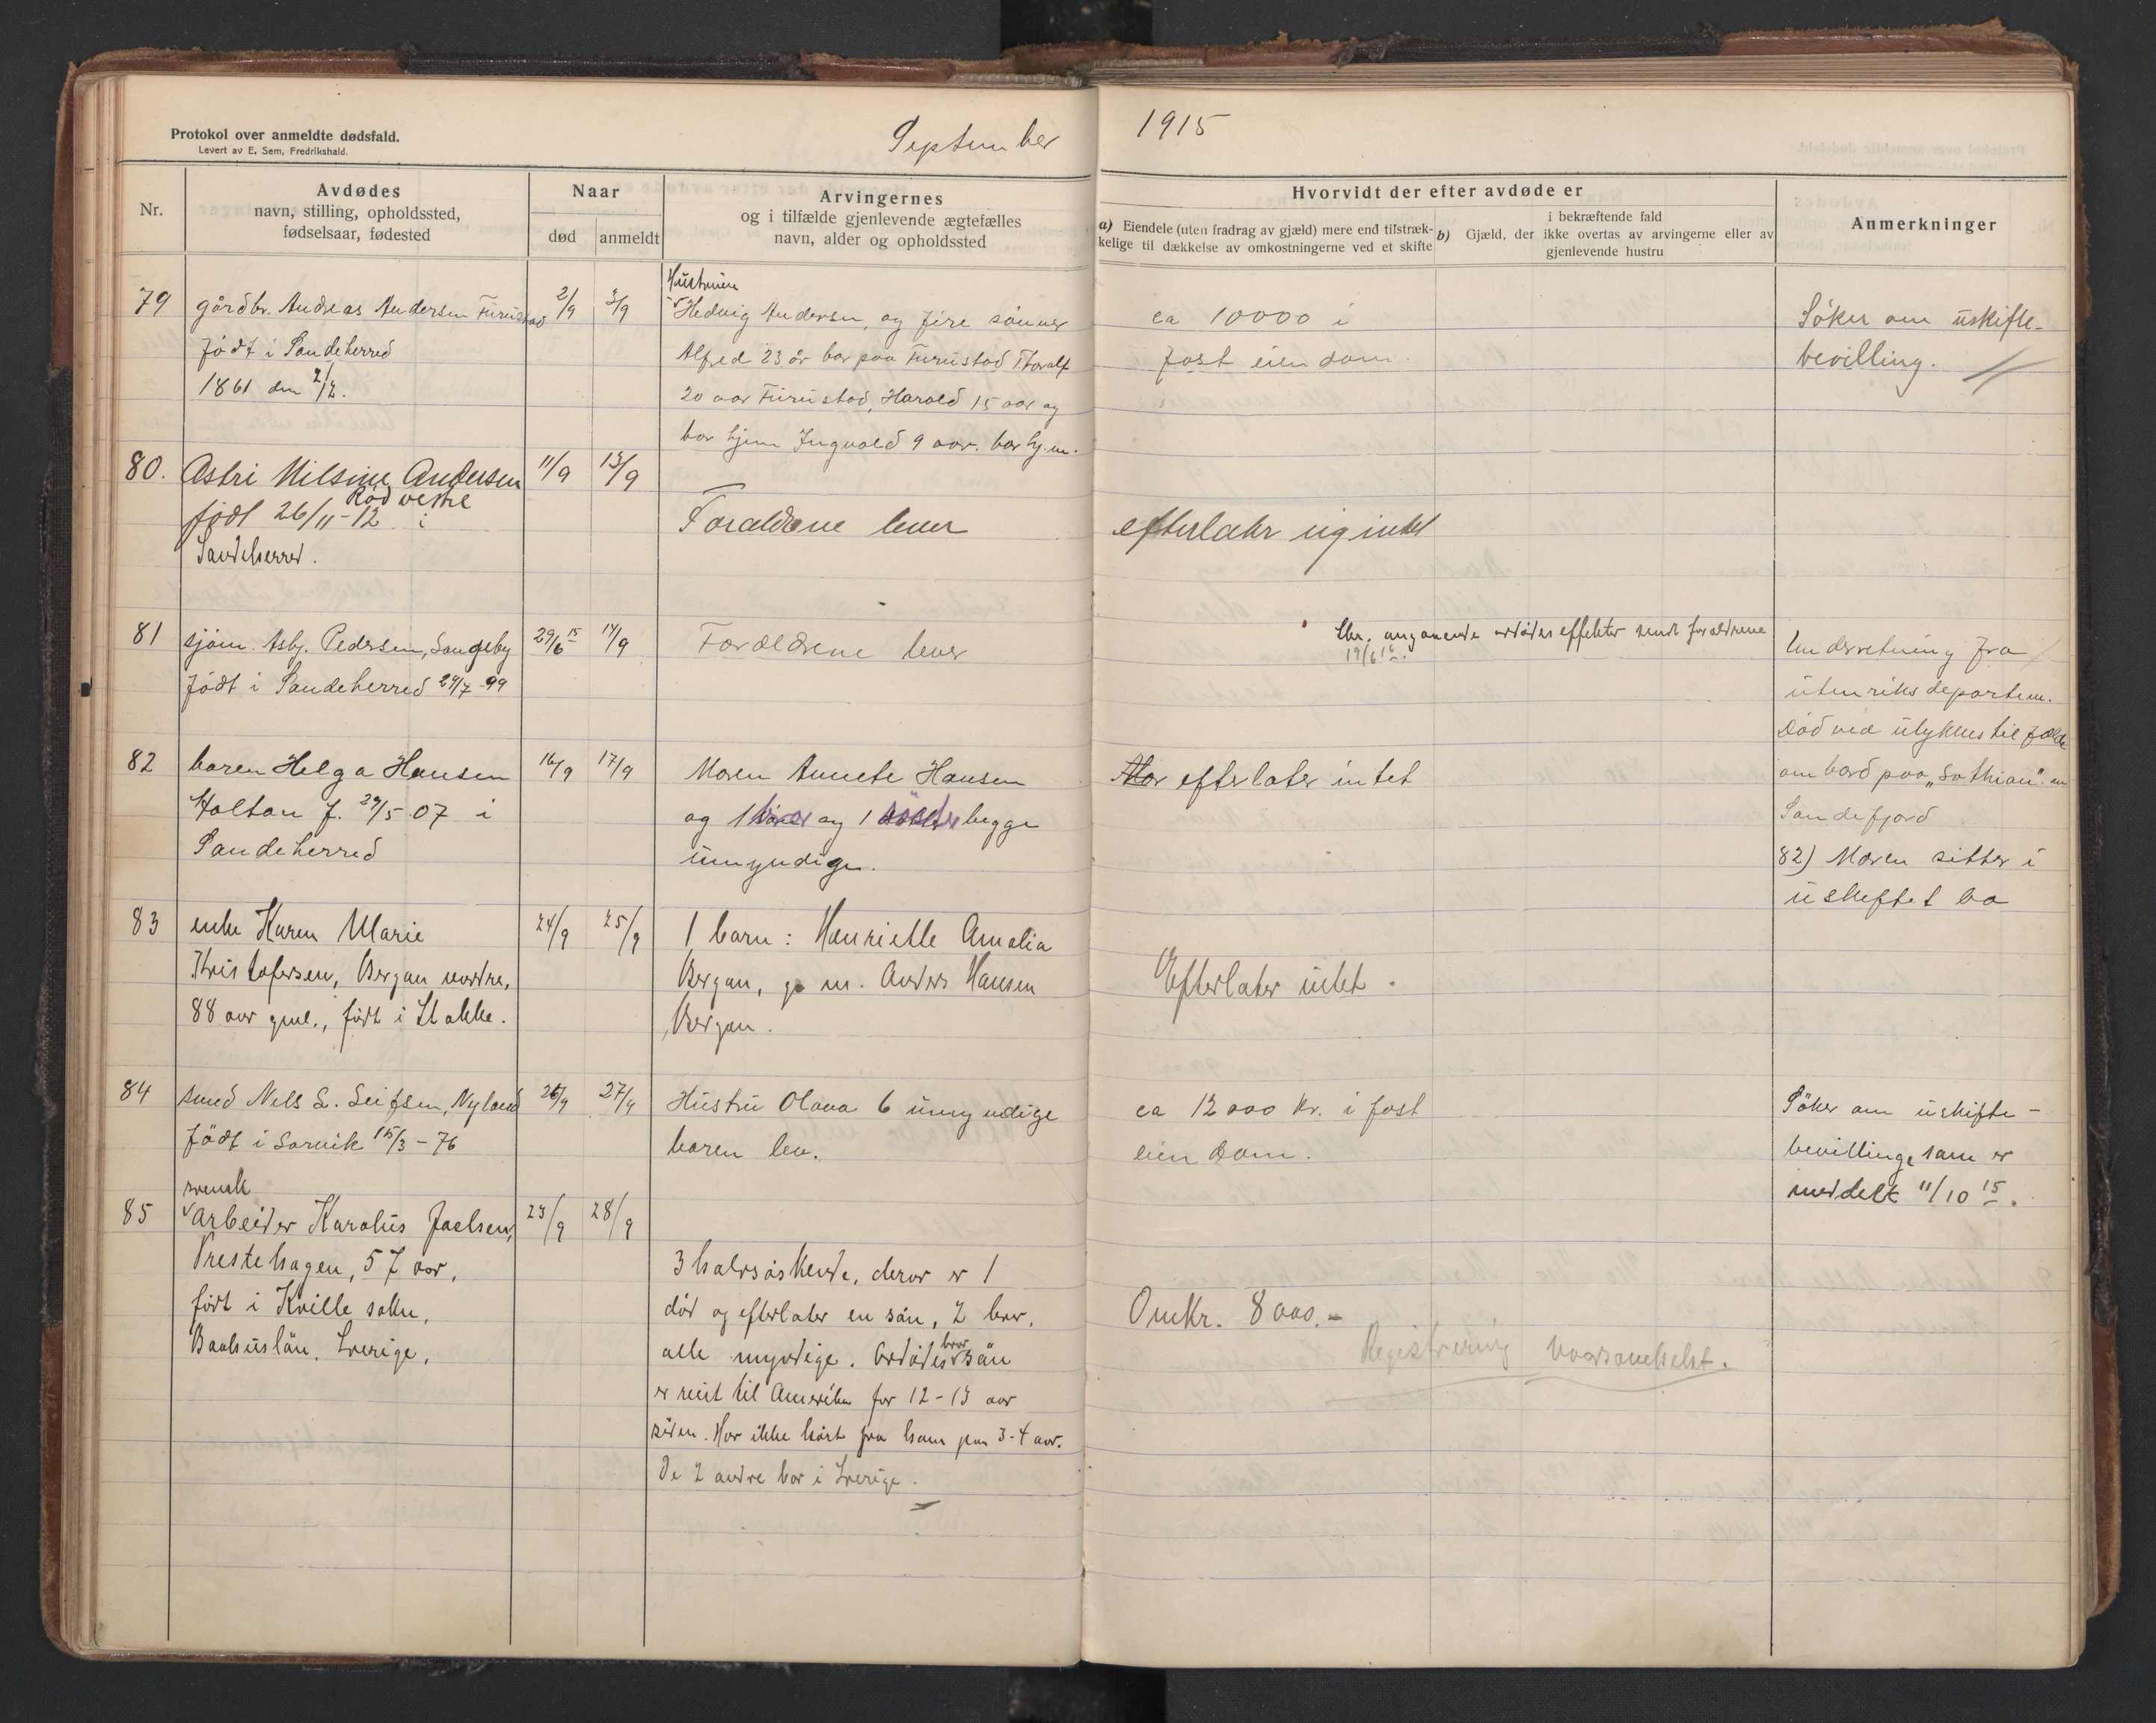 Protokol over anmeldte dødsfald.
Levert av E. Sem, Fredrikshald.
September 1915
Nr.
Avdødes
navn, stilling, opholdssted,
fødselsaar, fødested
Naar
død anmeldt
Arvingernes
og i tilfælde gjenlevende ægtefælles
navn, alder og opholdssted
Hvorvidt der efter avdøde er
a) Eiendele (uten fradrag av gjæld) mere end tilstræk-
kelige til dækkelse av omkostningerne ved et skifte
i bekræftende fald
b) Gjæld, der ikke overtas av arvingerne eller av
gjenlevende hustru
Anmerkninger
79
gårdbr. Andreas Andersen Furustad
født i Sandeherred
1861 den
2/9
3/9
Hustruen
Hedvig Andersen, og fire sønner
Alfred 23 år bor paa Furustad Thoralf
20 aar Furustad, Harald 15 aar og
bor hjem Ingvald 9 aar. bor hjem.
ca 10000 i
fast eiendom.
Søker om uskifte-
bevilling.
80.
Astri Nilsine Andersen
Rød vestre
født 26/11-12 i
Sandeherred.
11/9
13/9
Forældrene lever
efterlater sig intet
81
sjøm. Asbj. Pedersen, Sangeby
født i Sandeherred 29/7-99
29/6 15
14/9
Forældrene lever
Skr. angaaende avdødes effekter sendt forældrene
19/6 16.
Underretning fra
utenriksdepartem.
Død ved ulykkestilfælde
ombord paa "Sothian" av
Sandefjord
82
baren Helga Hansen
Haltan f. 29/5 07 i
Sandeherred
16/9
17/9
Moren Annete Hansen
og 1 bror og 1 søster begge
umyndige.
efterlater intet
82) Moren sitter i
uskiftet bo
83
enke Karen Marie
Kristofersen, Bergan nordre,
88 aar gml., født i Stokke.
24/9
25/9
1 barn: Henriette Amalia
Bergan, g. m. Anders Hansen
Bergan.
Efterlater intet.
84
smed Nils L. Leifsen, Nyland
født i Larvik 15/3-76
26/9
27/9
Hustru Olava 6 umyndige
baren lev.
ca 12000 kr. i fast
eiendom.
Søker om uskifte-
bevilling, som er
meddelt 11/10 15.
85
svensk
arbeider Karolus Joelsen,
Prestehagen, 57 aar,
født i Kville sokn,
Baahuslän, Sverige,
23/9
28/9
3 halvsøskende, derav er 1
død og efterlater en søn, 2 lever,
alle myndige. Avdødes brorsøn
er reist til Amerika for 12-13 aar
siden. Har ikke hørt fra ham paa 3-4 aar.
De 2 andre bor i Sverige.
Omkr. 8000.-
Registrering